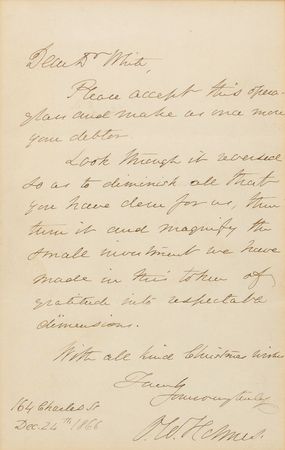 Dear Dr White,
Please accept this opera-
glass and make us once more
your debtor.
Look through it reversed
so as to diminish all that
you have done for us, then
turn it and magnify the
small investment we have
made in this token of
gratitude into respectable
dimensions.
With all kind Christmas wishes
Yours very truly
O. W. Holmes.
164 Charles St
Dec. 24th 1866